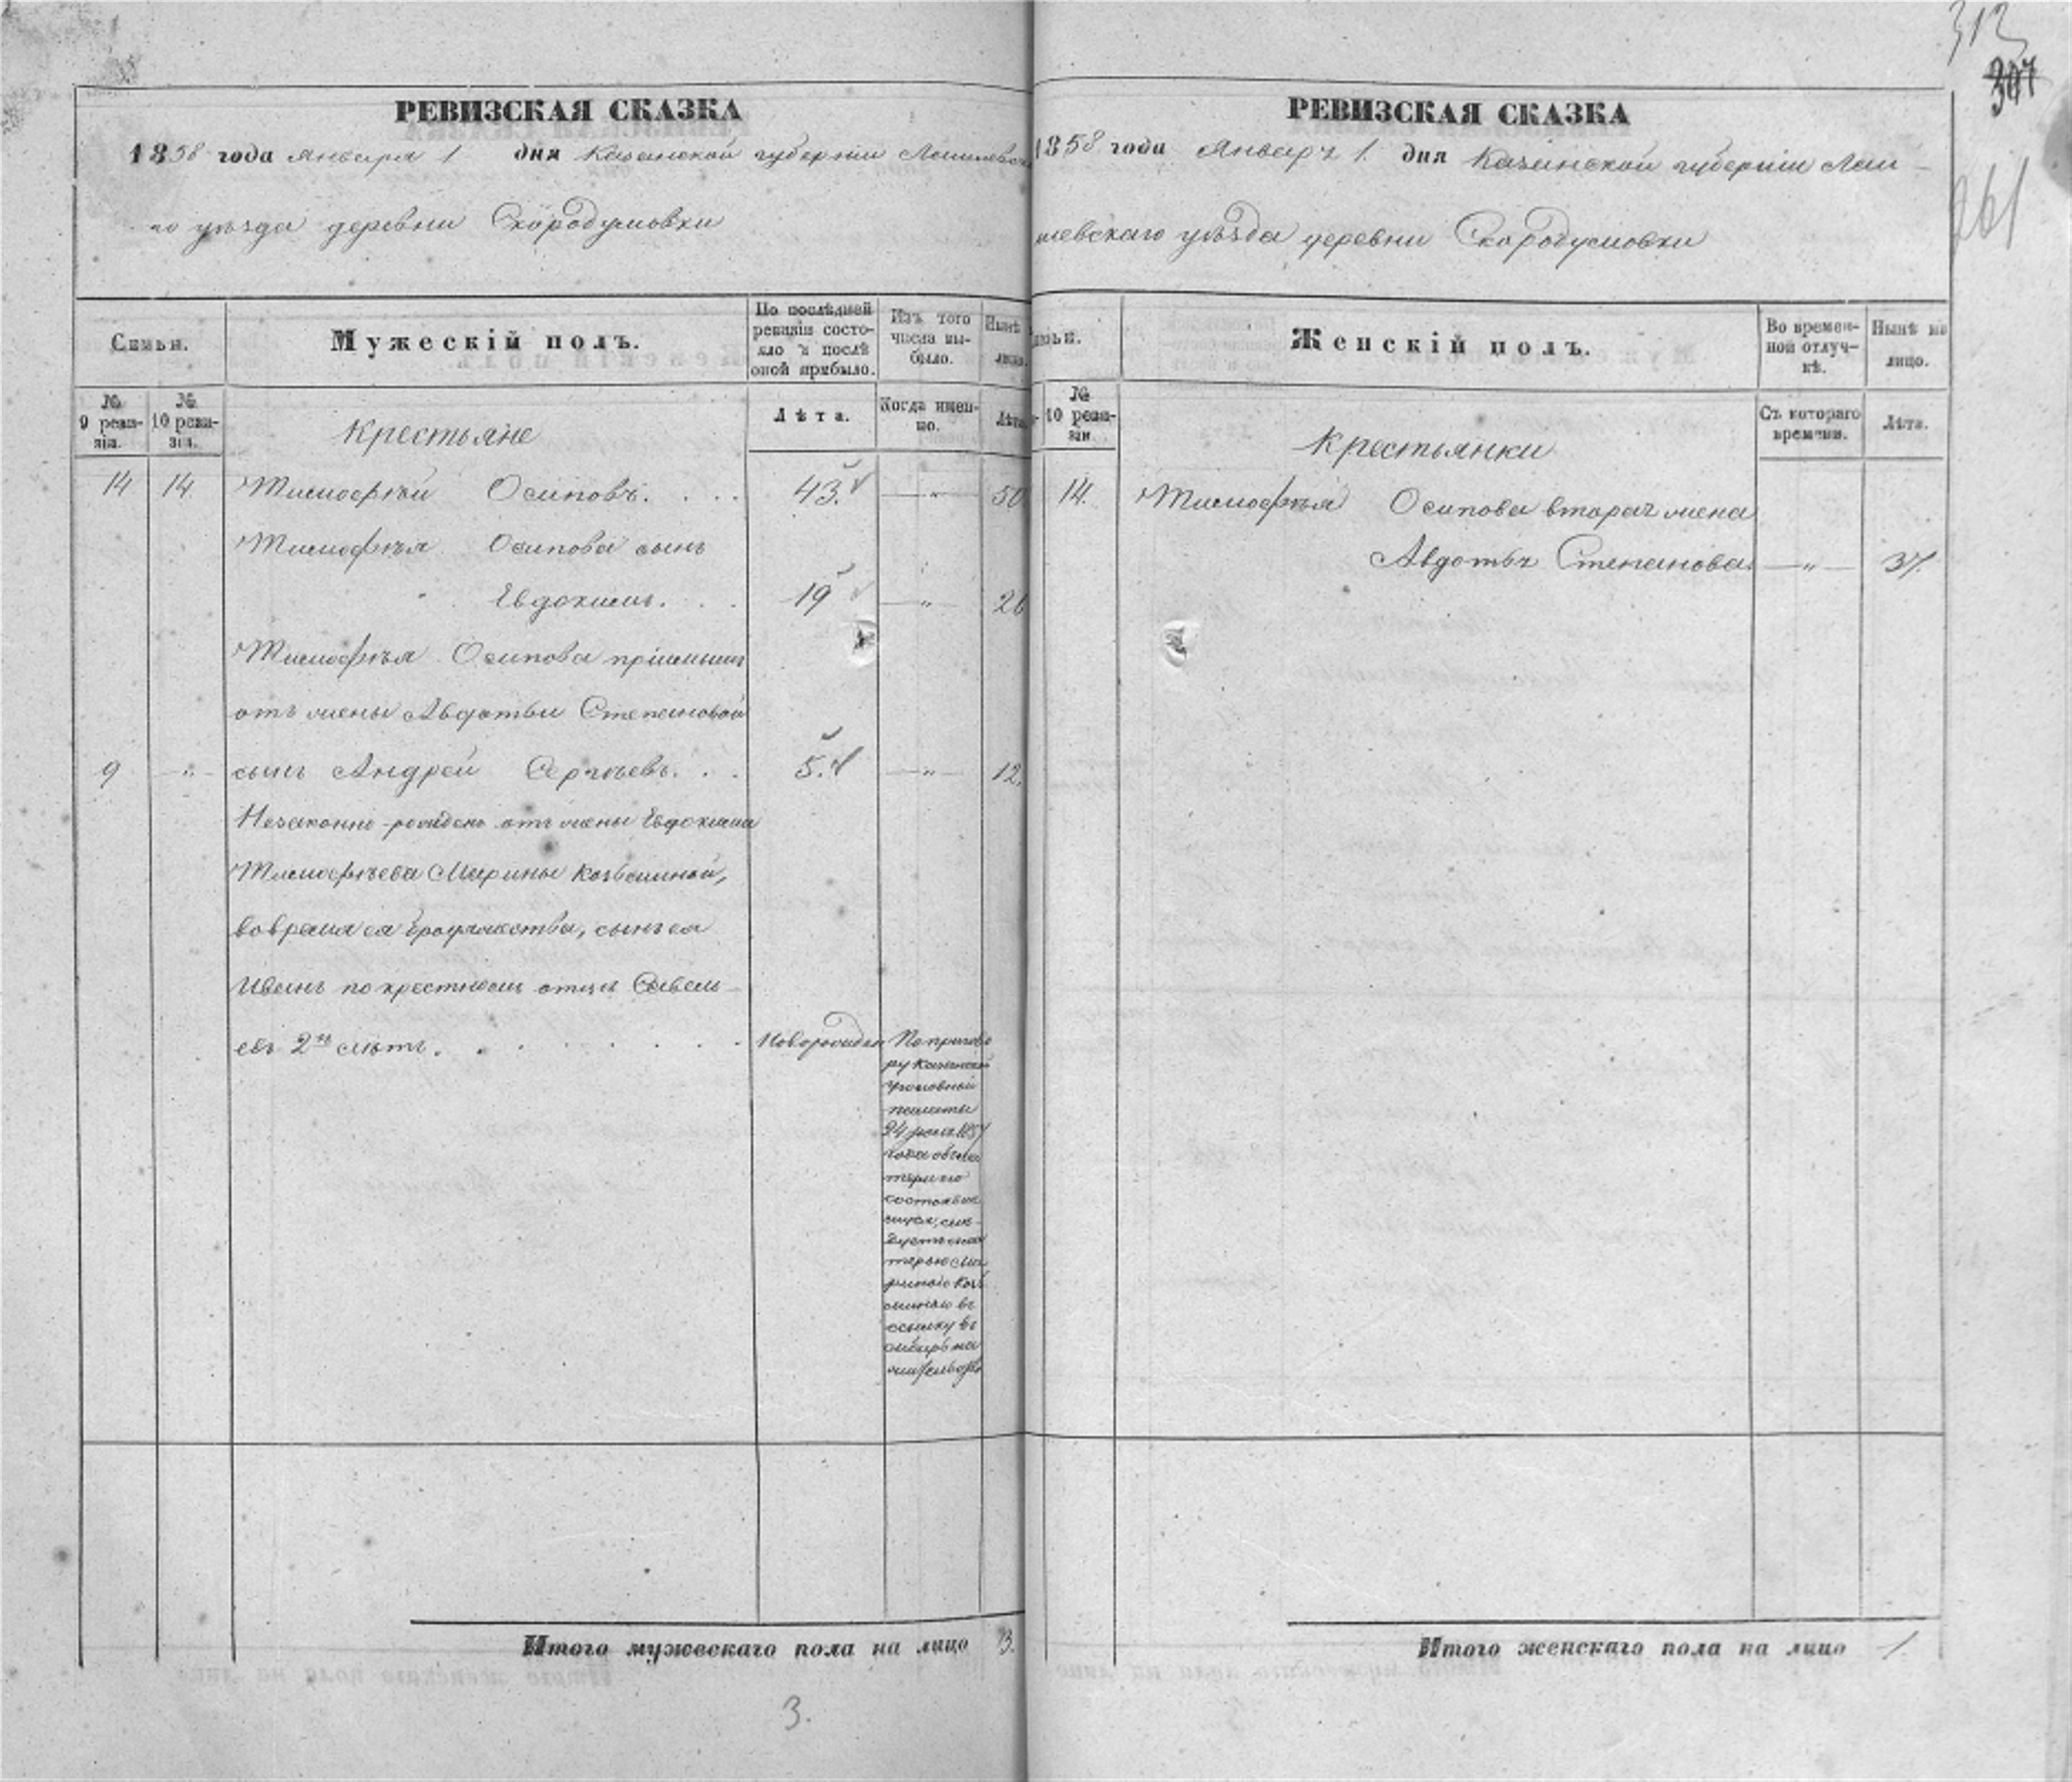 312
307
261
РЕВИЗСКАЯ СКАЗКА
1858 года Января 1 дня Казанской губерніи Лаишевска
го уѣзда деревни Скородумовки
Семьи.
Мужескій полъ.
По послѣдней ревизіи состояло и послѣ оной прибыло.
Изъ того числа выбыло.
Нынѣ лицо.
№ 9 ревизіи.
№ 10 ревизіи.
Крестьяне
Лѣта.
Когда именно.
Лѣта
14 14 Тимофѣй Осиповъ. . . . 43. —"— 50
Тимофѣя Осипова сынъ
Евдокимъ. . . 19 —"— 26
Тимофѣя Осипова пріемышъ
отъ жены Авдотьи Степановой
9 —"— сынъ Андрей Сергѣевъ. . . 5. —"— 12.
Незаконно-рожденъ отъ жены Евдокима
Тимофѣева Марины Козьминой,
вовремя ея бродяжества, сынъ ея
Иванъ по крестномъ отцѣ Савель
евъ 2хъ лѣтъ. . . . . . . Новорожден
По пригово
ру Казанской
уголовной
палаты
24 1857
года объ ма
тери его
состоявше
муся, слѣ-
дуетъ съ ма
терью Ма
риною Козь
миною въ
ссылку въ
сибирь на
жительство
Итого мужескаго пола на лицо 3.
3.
РЕВИЗСКАЯ СКАЗКА
1858 года Января 1. дня Казанской губерніи Лаи-
шевскаго уѣзда деревни Скородумовки
Женскій полъ.
Во временной отлучкѣ.
Нынѣ на лицо.
№ 10 ревизіи
Крестьянки
Съ котораго времени.
Лѣта.
14. Тимофѣя Осипова вторая жена
Авдотья Степанова. —"— 37.
Итого женскаго пола на лицо 1.